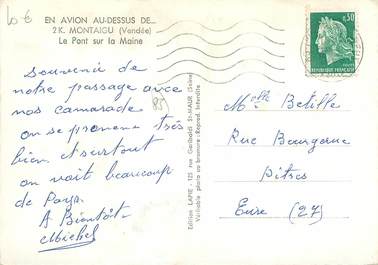 10 €
EN AVION AU-DESSUS DE...
2K. MONTAIGU (Vendée)
Le Pont sur la Maine
0,50
REPUBLIQUE FRANÇAISE
Souvenir de
notre passage avec
nos camarade
on se promene très
bien et surtout
on voit beaucoup
de Pays.
A Bientôt
Michel
(85)
Edition LAPIE - 125 rue Garibaldi St-MAUR (Seine)
Véritable photo au bromure - Reprod. Interdite
Melle Betille
Rue Bourgerue
Pitres
Eure (27)